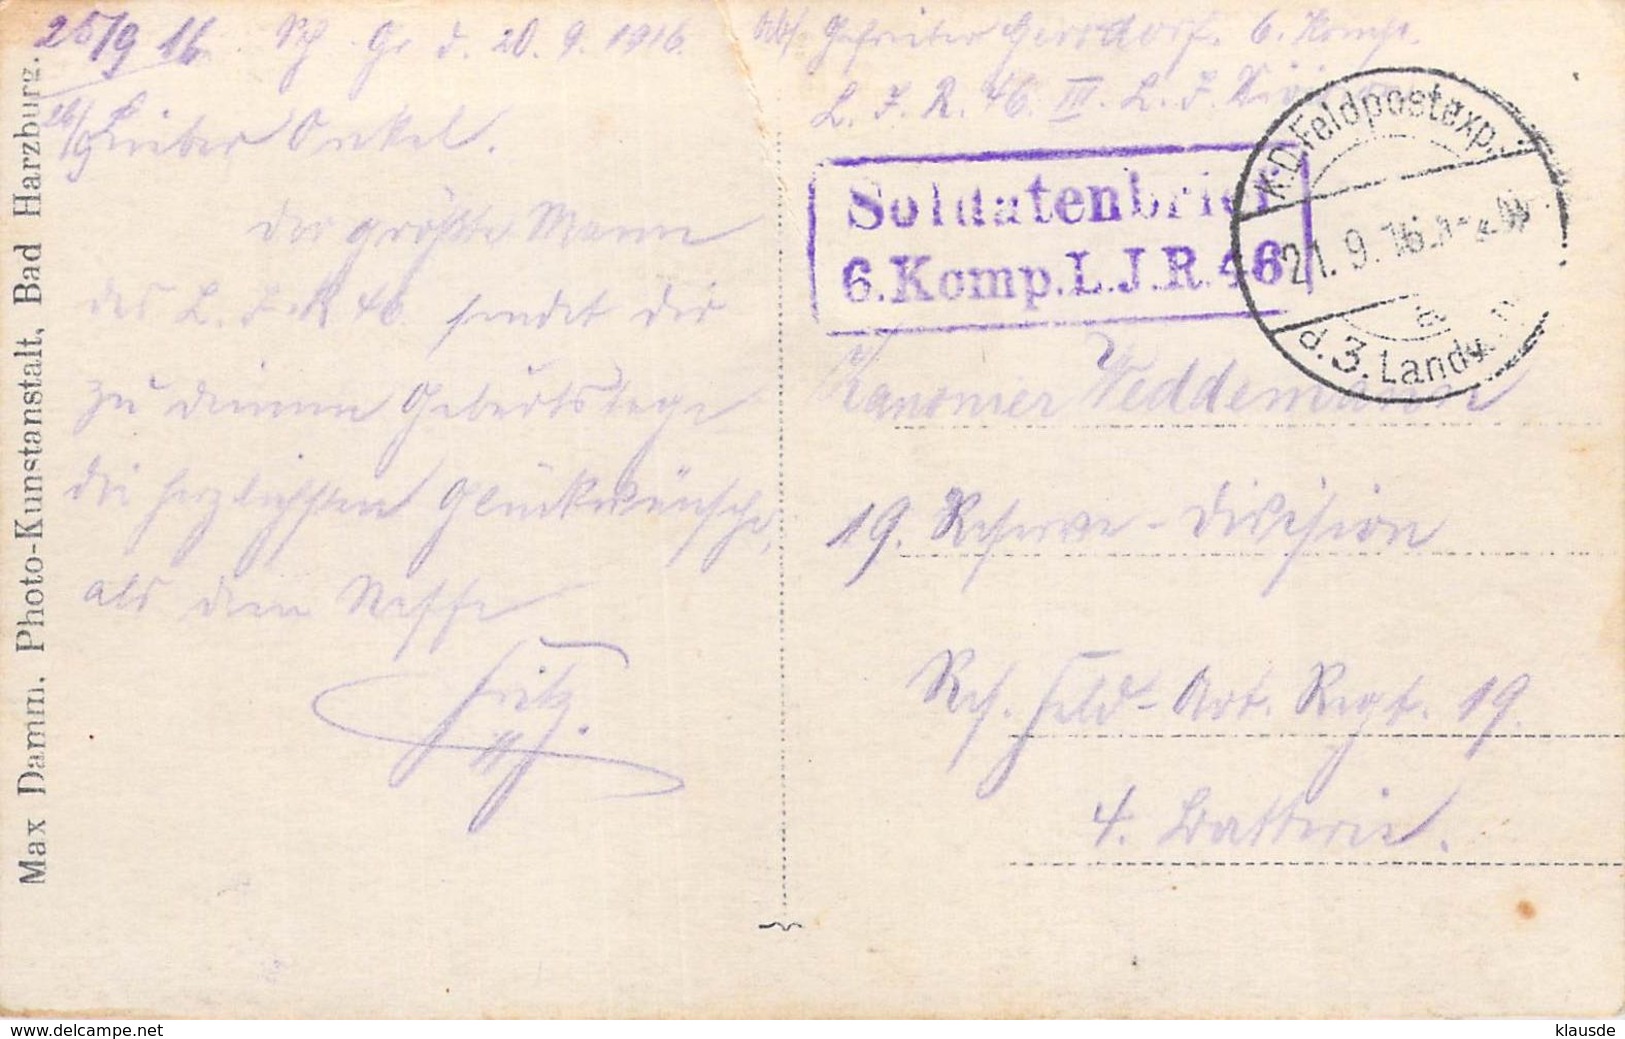 25/9 16. Sch. Gr. d. 20. 9. 1916.
26/9
Lieber Onkel.
Der größte Mann
des L. I. R. 46. sendet dir
zu deinem Geburtstage
die herzlichsten Glückwünsche,
als dein Neffe
Fritz.
Abs. Gefreiter Gerrdorf. 6. Komp.
L. I. R. 46. III. L. I. Div.
Soldatenbrief
6.Komp.L.J.R.46
K.D.Feldpostexp.
21.9.16.
a
d.3.Landw.
Kanonier Weddemann
19. Reserve-Division
Res. Feld-Art. Regt. 19.
4. Batterie.
Max Damm, Photo-Kunstanstalt, Bad Harzburg.
www.delcampe.net
klausde